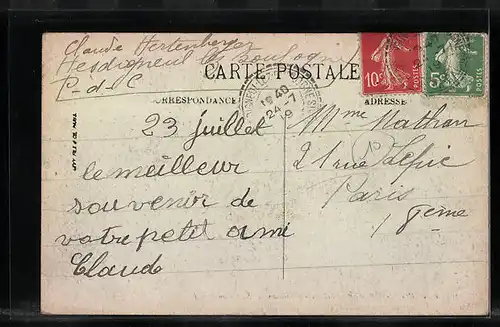 Claude Hertenberger
Hesdigneul les Boulogne
P-d-C
CARTE POSTALE
CORRESPONDANCE
ADRESSE
10c
POSTES
5c
POSTES
19 40
24 -7
23 juillet
le meilleur
souvenir de
votre petit ami
Claude
Mme Nathan
21 rue Lepic
Paris
18eme